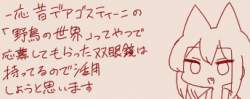 一応昔デアゴスティーニの
「野鳥の世界」ってやつで
応募してもらった双眼鏡は
持ってるので活用
しようと思います